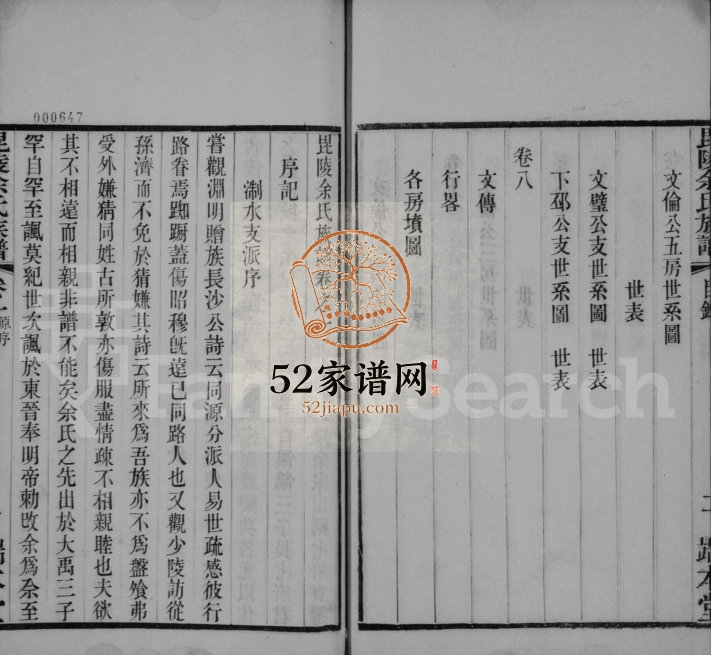 毘陵余氏族譜 目錄
文倫公五房世系圖
世表
文璧公支世系圖 世表
下邳公支世系圖 世表
卷八
文傳公二房世系圖
世表
行畧
各房墳圖
二
000647
毘陵余氏族
序記
淛水支派序
嘗觀淵明贈族長沙公詩云同源分派人易世疏感彼行
路眷焉踟躕蓋傷昭穆旣遠已同路人也又觀少陵訪從
孫濟而不免於猜嫌其詩云所來爲吾族亦不爲盤飧弗
受外嫌猜同姓古所敦亦傷服盡情疎不相親睦也夫欲
其不相遠而相親非譜不能矣余氏之先出於大禹三子
罕自罕至諷莫紀世次諷於東晉奉明帝勅改余爲佘至
毘陵余氏族譜
原序
52家谱网
52jiapu.com
Family Search